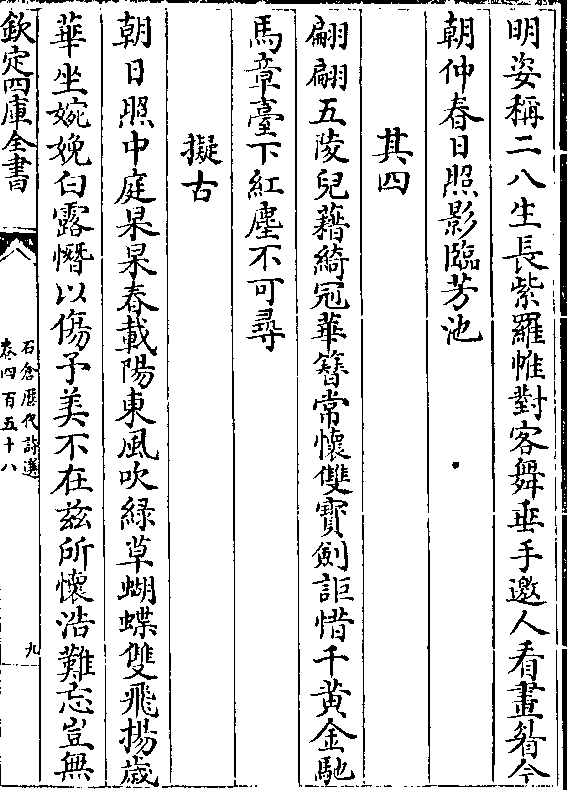 明姿稱二八生長紫羅帷對客舞垂手邀人看畫眉今
朝仲春日照影臨芳池
其四
翩翩五陵兒藉綺冠華簪常懷雙寶劍詎惜千黃金馳
馬章臺下紅塵不可尋
擬古
朝日照中庭杲杲春載陽東風吹綠草蝴蝶雙飛揚歳
華坐婉娩白露憯以傷予美不在茲所懷浩難忘豈無
欽定四庫全書
石倉歷代詩選
卷四百五十八
九